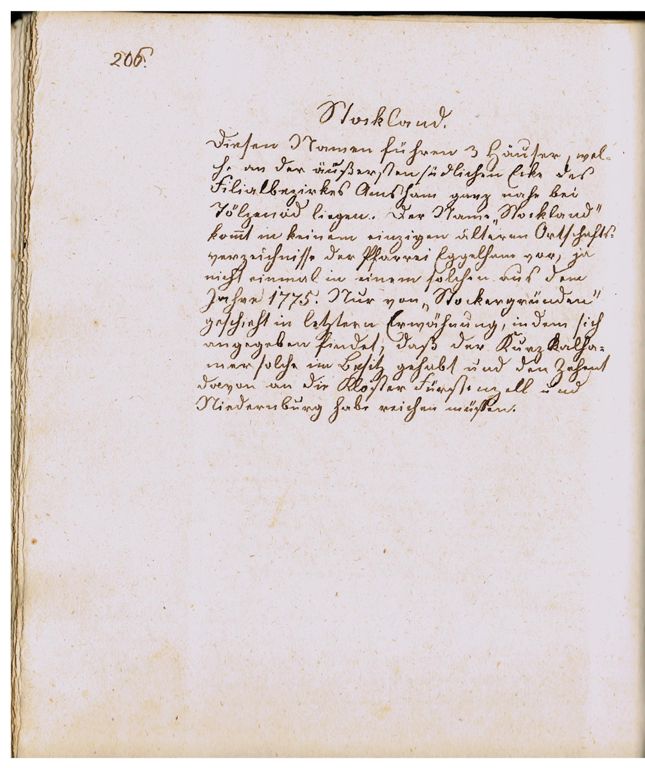 206.
Stockland.
Diesen Namen führen 3 Häuser, wel-
che an der äußersten südlichen Ecke des
Filialbezirkes Amsham ganz nahe bei
Tölzenöd liegen. Der Name „Stockland"
kom̅t in keinem einzigen älteren Ortschafts-
verzeichnisse der Pfarrei Egglham vor, ja
nicht einmal in einem solchen aus dem
Jahre 1775. Nur von „Stockergründen"
geschieht in letztern Erwähnung, indem sich
angegeben findet, daß der Kurz
mer solche im Besitz gehabt und den Zehent
davon an die Kloster Fürstenzell und
Niedernburg habe reichen müssen.